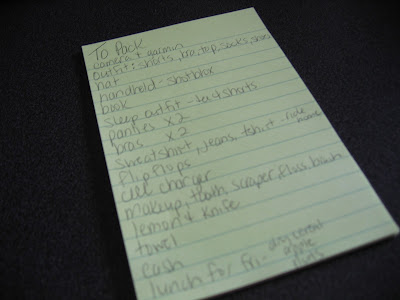 To Pack
camera + garmin
outfit: shorts, bra, top, socks, shoes
hat
handheld - shotblox
book
sleep outfit - tee + shorts
panties x 2
bras x 2
sweatshirt, jeans, tshirt - ride home
flip flops
cell charger
makeup, tooth, scraper, floss, brush
lemon + knife
towel
cash
lunch for fri - apple